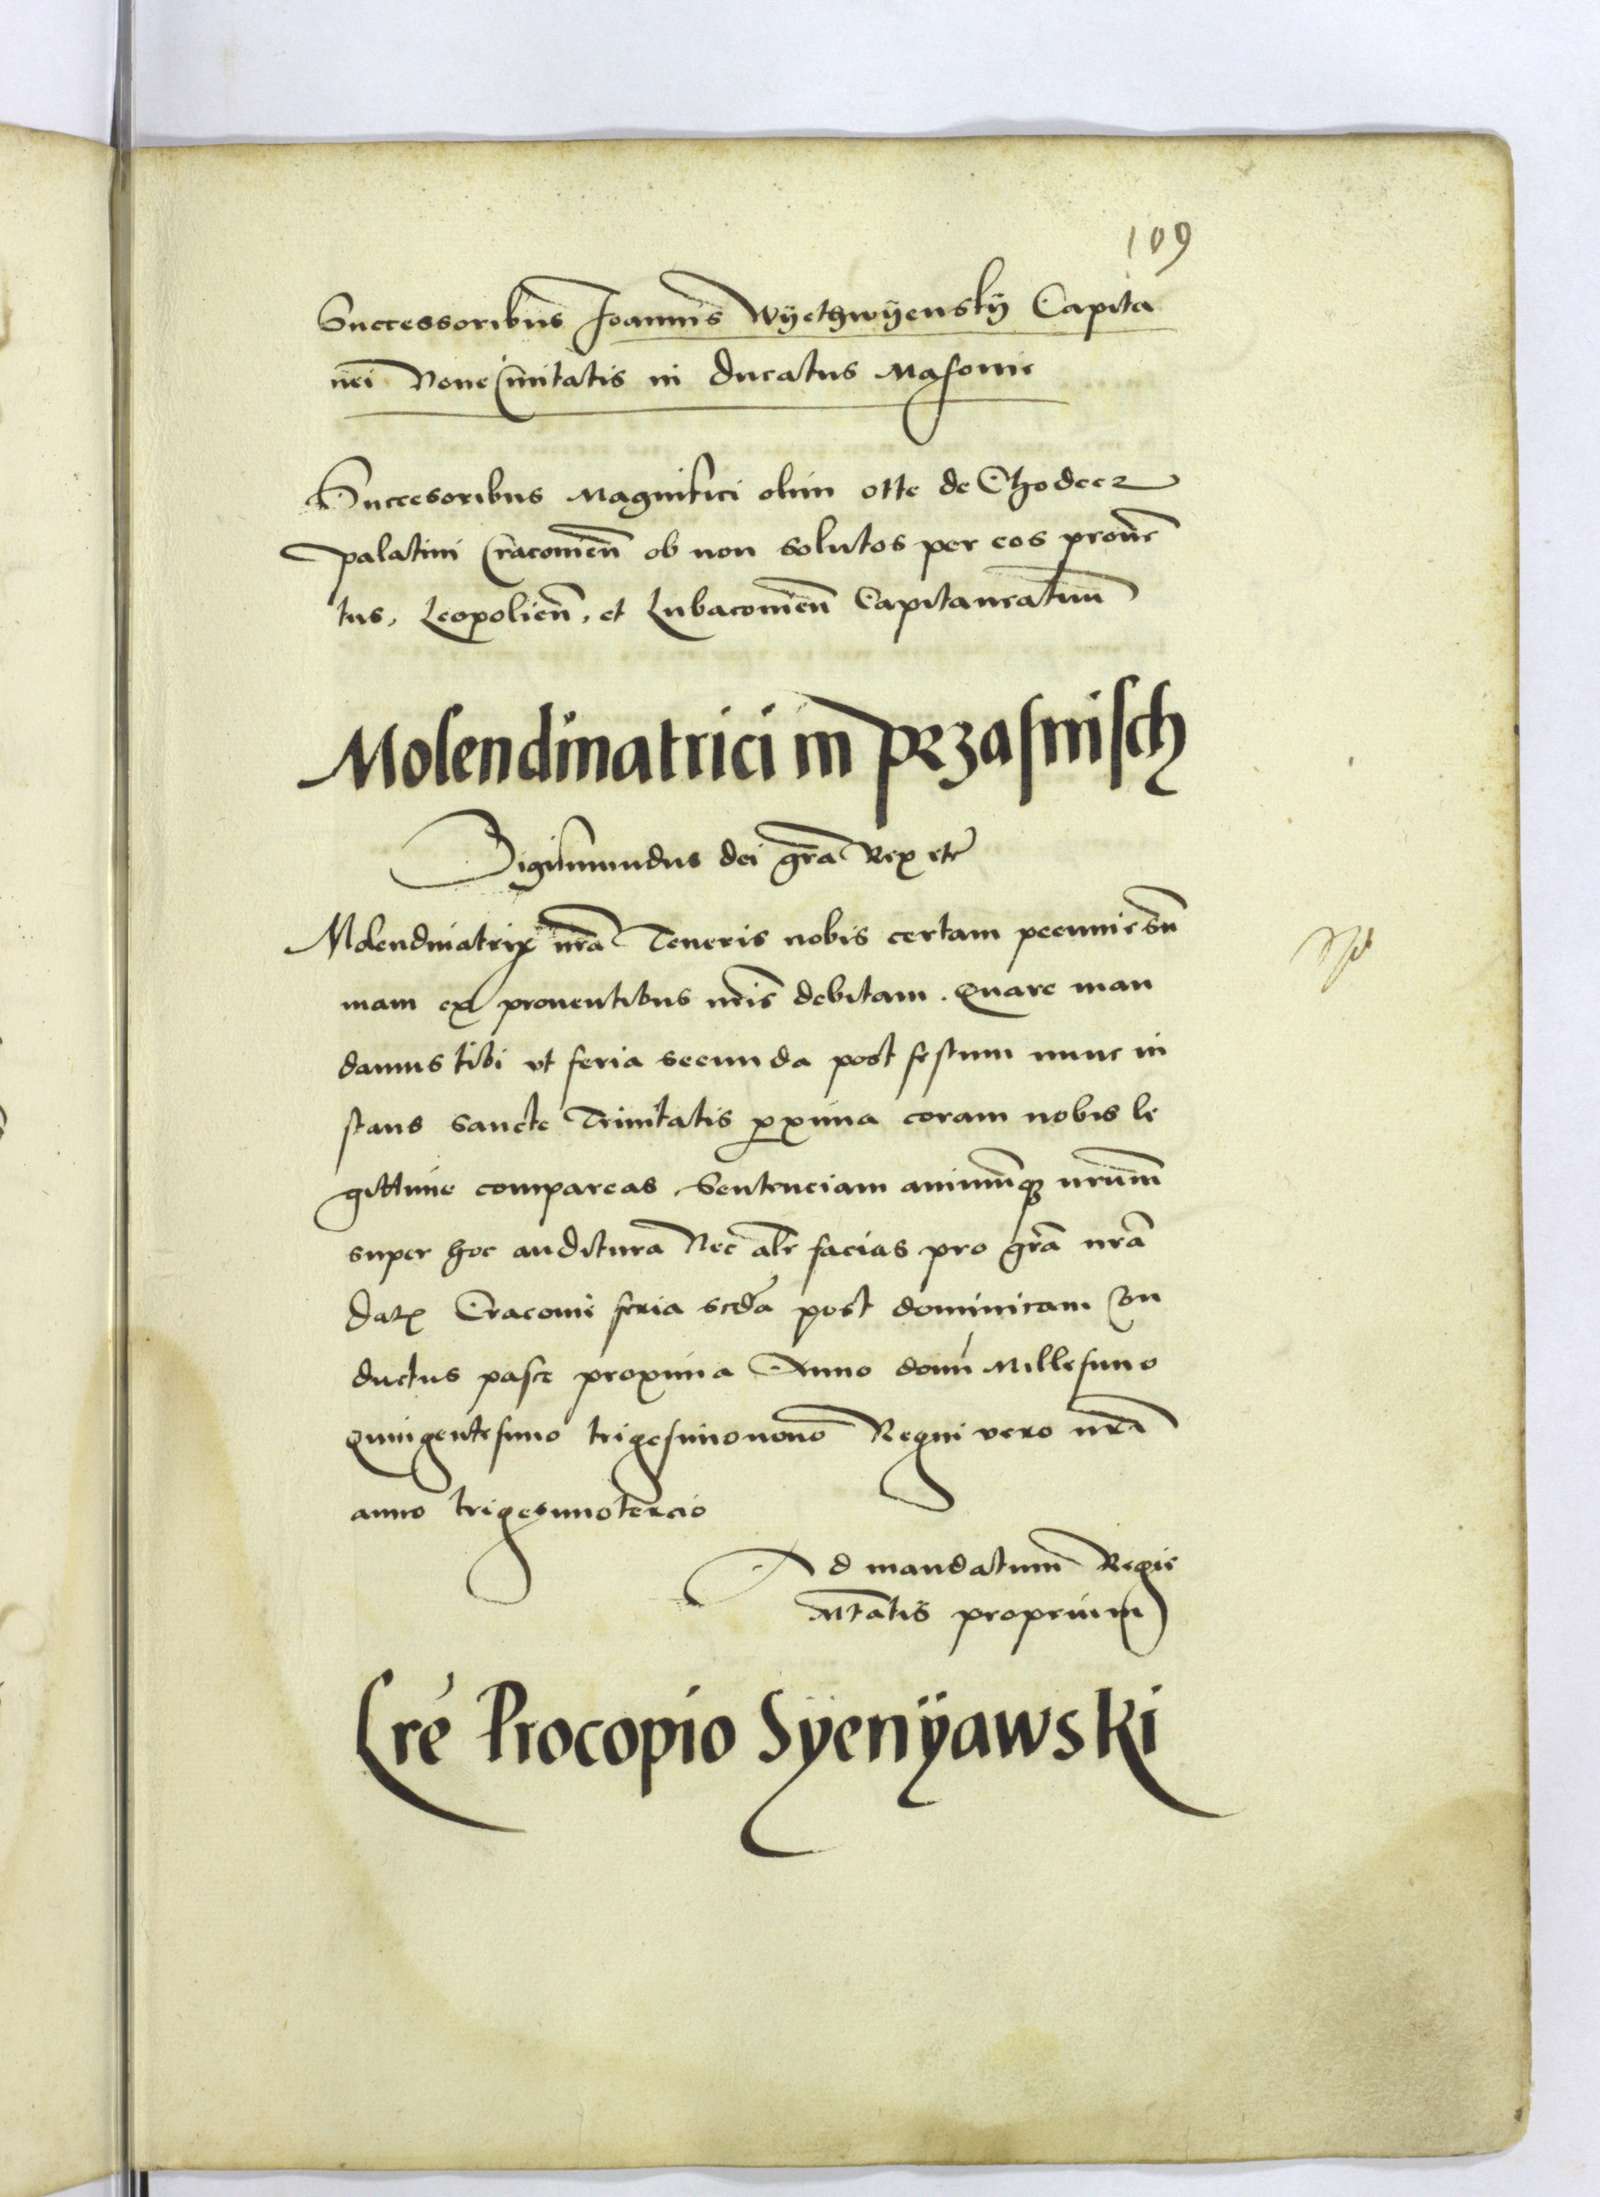 109
Successoribus Joannis Wÿethwÿenskÿ Capita
nei Noue Ciuitatis in ducatus Masouie
Succesoribus Magnifici olim Otte de Chodecz
palatini Cracouien̄ ob non solutos per eos prouē
tus, Leopolien̄, et Lubacouien̄ Capitaneatuū
Molendinatrici in Przasnisch
Sigismundus dei gr̄a Rex etc̄
Molendinatrix nr̄a Teneris nobis certam pecunie sū
mam ex prouentibus nr̄is debitam. Quare man
damus tibi vt feria secunda post festum nunc in
stans Sancte Trinitatis ꝓxima coram nobis le
gittime compareas Sentenciam animūqꝫ nrūm
super hoc auditura Nec alr̄ facias pro gr̄a nr̄a
Datꝫ Cracouie feria scd̄a post dominicam Con
ductus pasce proxima Anno domī Millesimo
quingentesimo trigesimonono Regni vero nr̄i
anno trigesimotercio
Ad mandatum Regie
Mt̄atis proprium
Lr̄e Procopio Sÿenÿawski